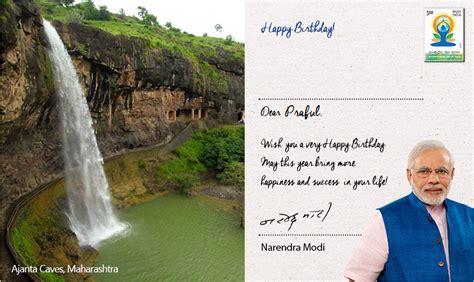 Happy Birthday!
Dear Praful.
Wish you a very Happy Birthday.
May this year bring more
happiness and success in your life!
Narendra Modi
Ajanta Caves, Maharashtra